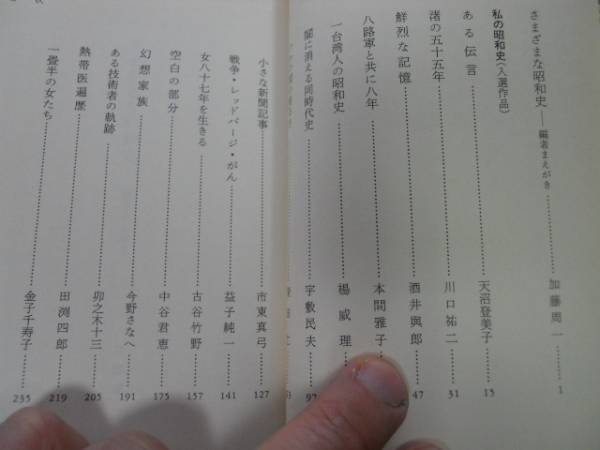 さまざまな昭和史——編者まえがき 加藤周一 1
私の昭和史(入選作品)
ある伝言 天沼登美子 15
渚の五十五年 川口祐二 31
鮮烈な記憶 酒井與郎 47
八路軍と共に八年 本間雅子
一台湾人の昭和史 楊威理
闇に消える同時代史 宇敷民夫 97
小さな新聞記事 市東真弓 127
戦争・レッドパージ・がん 益子純一 141
女八十七年を生きる 古谷竹野 157
空白の部分 中谷君恵 175
幻想家族 今野さなへ 191
ある技術者の軌跡 卯之木十三 205
熱帯医遍歴 田渕四郎 219
一畳半の女たち 金子千寿子 235